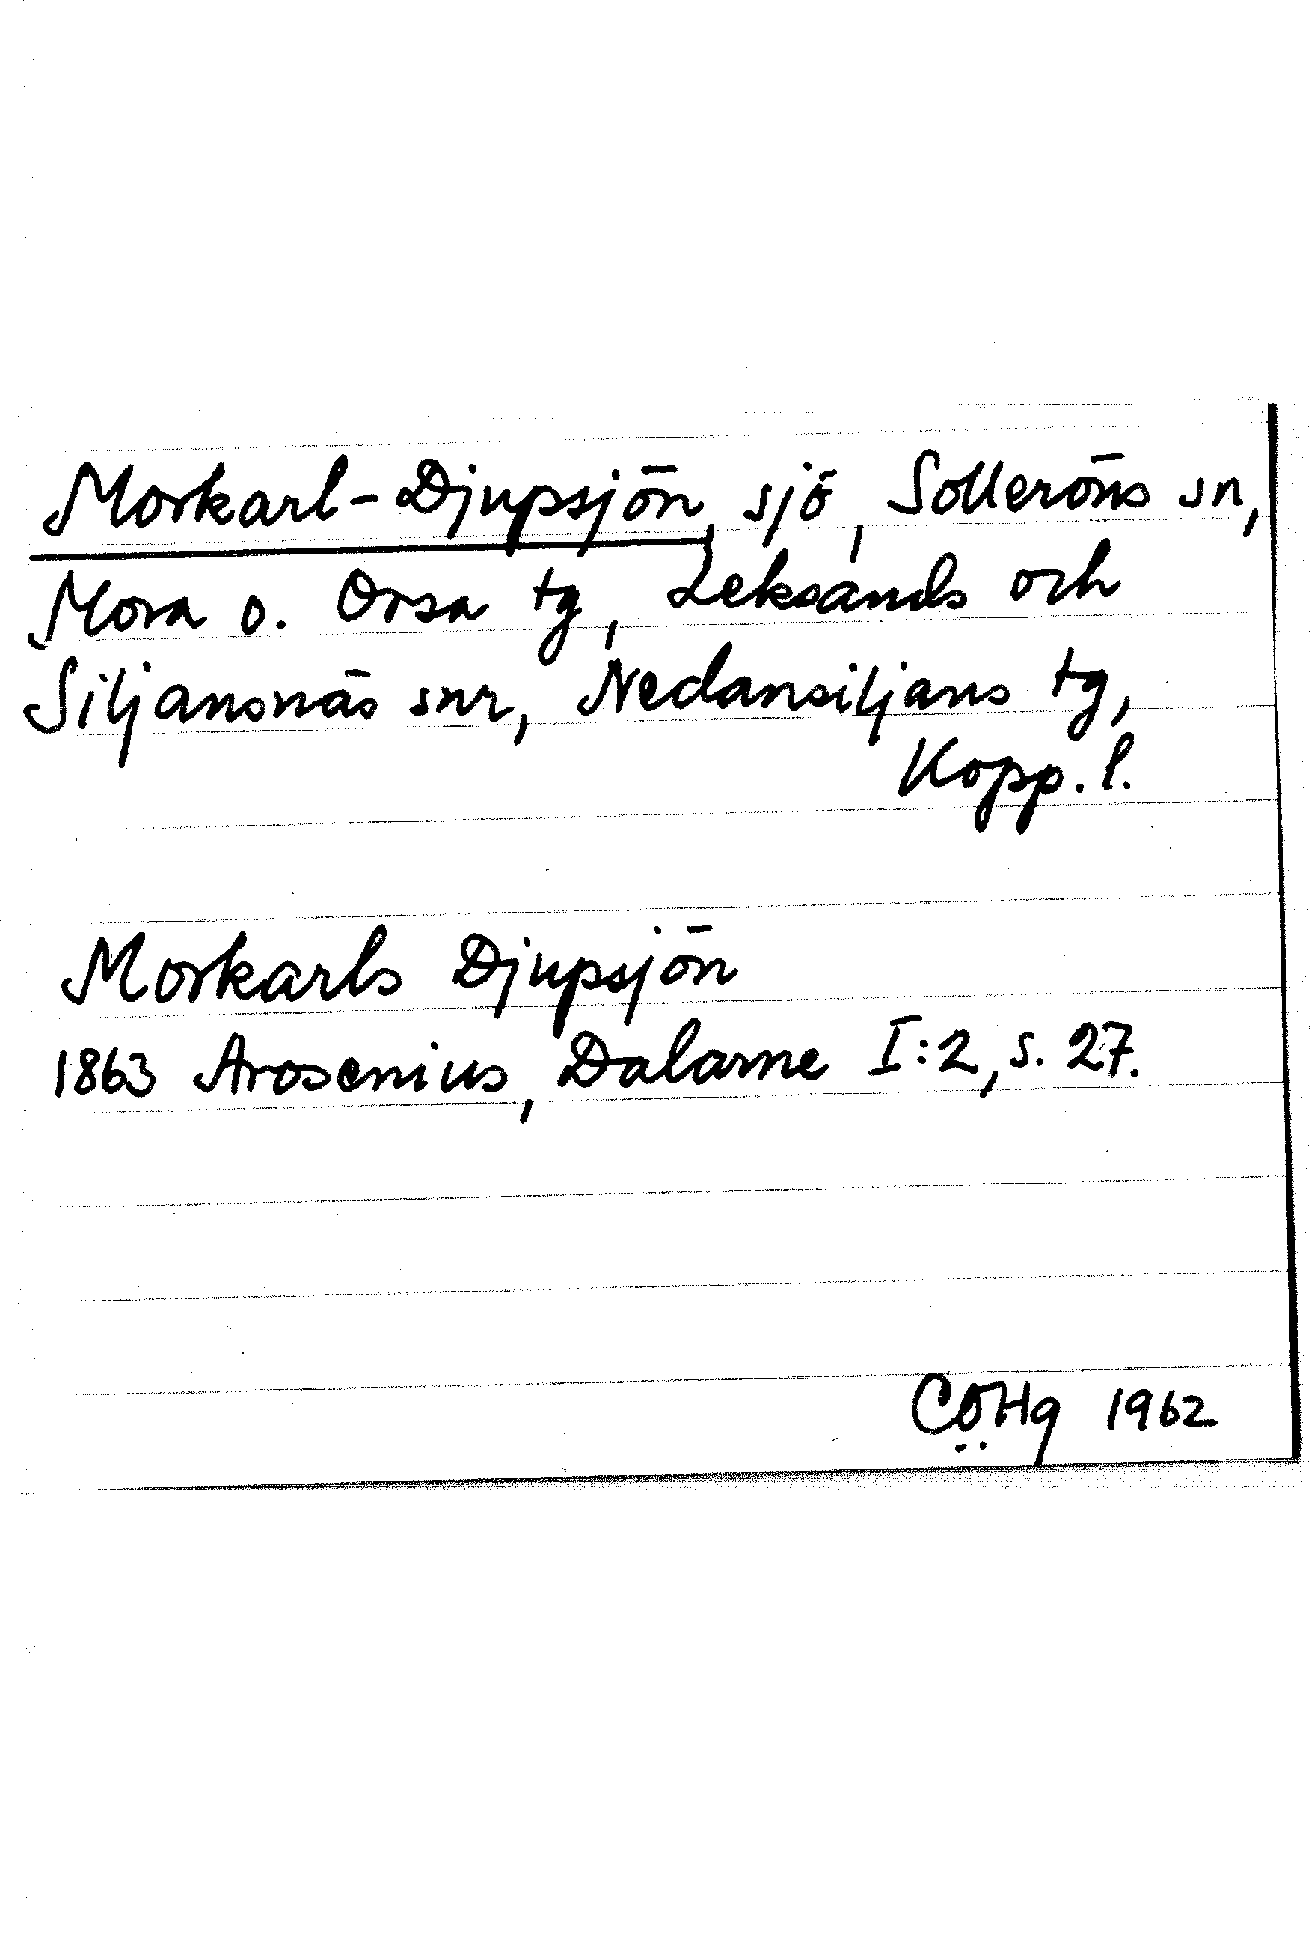 Morkarl-Djupsjön, sjö, Solleröns sn,
Mora o. Orsa tg, Leksands och
Siljansnäs snr, Nedansiljans tg,
Kopp. l.
Morkarls Djupsjön
1863 Arosenius, Dalarne I:2, s. 27.
CÖHg 1962